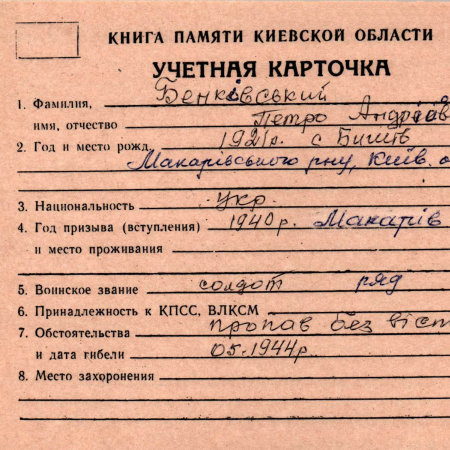 КНИГА ПАМЯТИ КИЕВСКОЙ ОБЛАСТИ
УЧЕТНАЯ КАРТОЧКА
1. Фамилия, Бенковський
имя, отчество Петро Андріїв
2. Год и место рожд. 1921р. с Бишів
Макарівського р-ну, Київ. о
3. Национальность укр.
4. Год призыва (вступления) 1940 р. Макарів
и место проживания
5. Воинское звание солдат ряд
6. Принадлежность к КПСС, ВЛКСМ
7. Обстоятельства пропав без віст
и дата гибели 05.1944р
8. Место захоронения